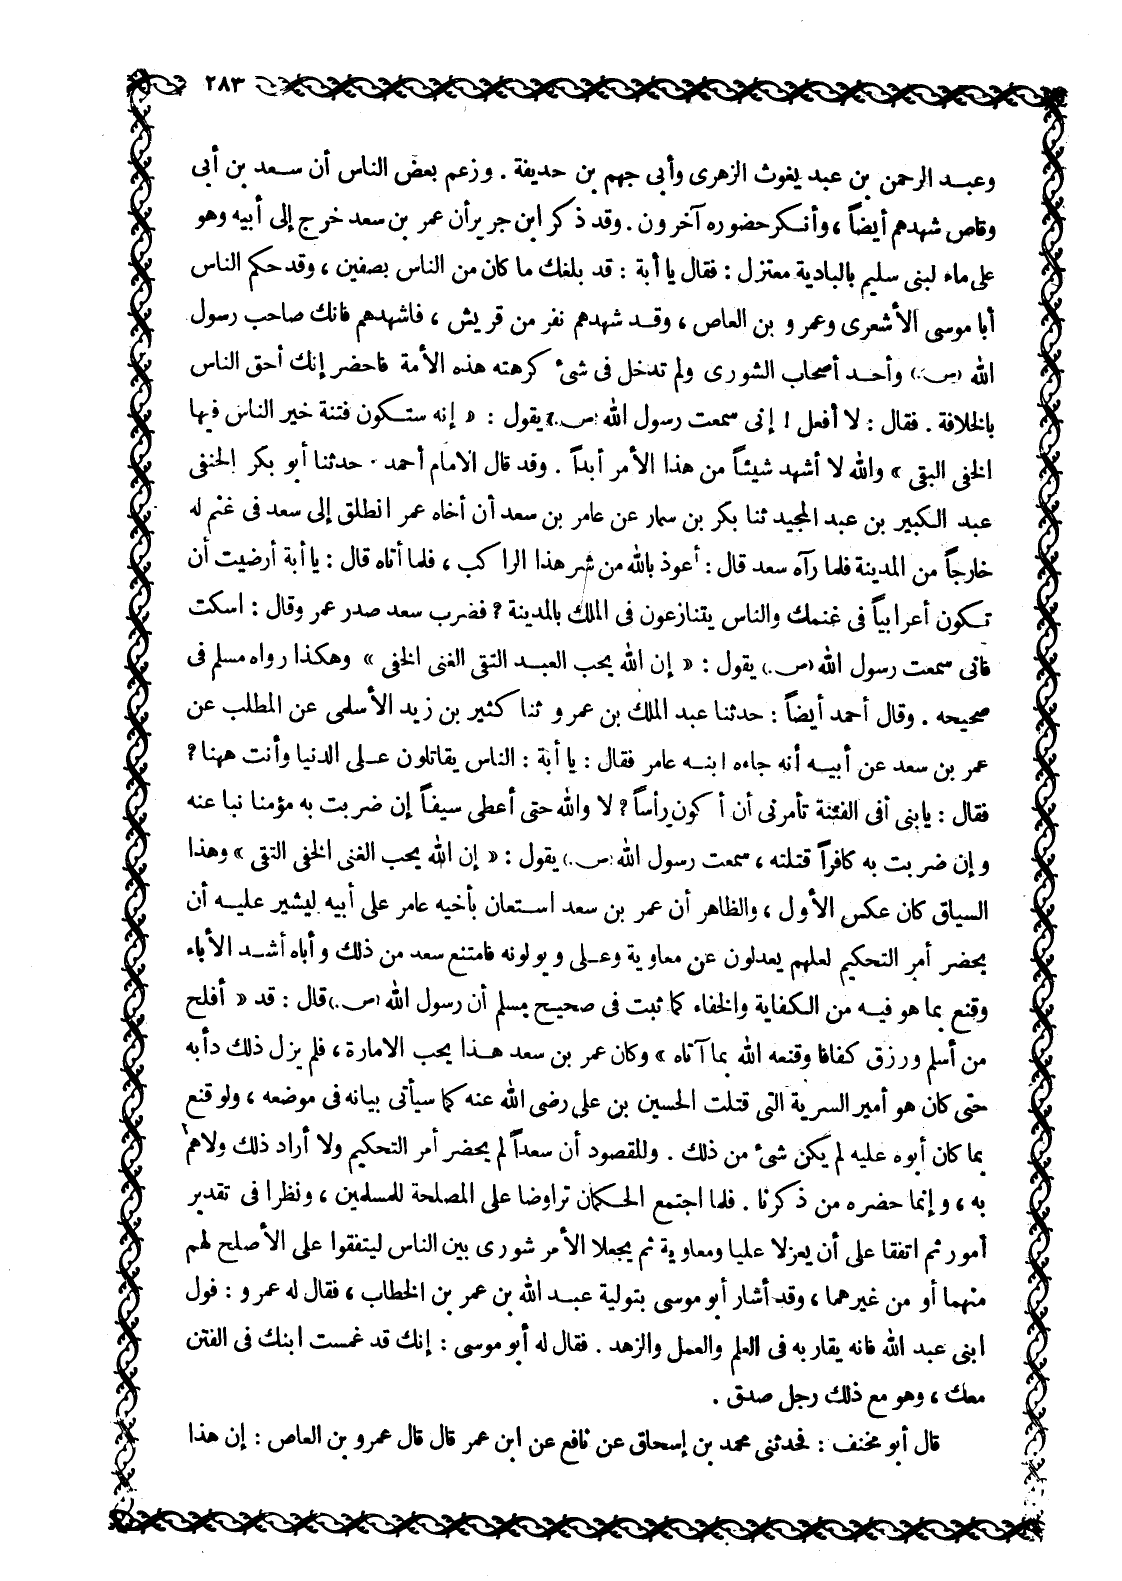 ٢٨٣
وعبد الرحمن بن عبد يغوث الزهرى وأبي جهم بن حذيفة . وزعم بعض الناس أن سعد بن أبي
وقاص شهدهم أيضاً ، وأنكر حضوره آخرون . وقد ذكر ابن جرير أن عمر بن سعد خرج إلى أبيه وهو
على ماء لبني سليم بالبادية معتزل : فقال يا أبة : قد بلغك ما كان من الناس بصفين ، وقد حكم الناس
أبا موسى الأشعرى وعمرو بن العاص ، وقد شهدهم نفر من قريش ، فاشهدهم فانك صاحب رسول
الله (ص.) وأحد أصحاب الشورى ولم تدخل فى شئ كرهته هذه الأمة فاحضر إنك أحق الناس
بالخلافة . فقال : لا أفعل ! إنى سمعت رسول الله (ص.) يقول : « إنه ستكون فتنة خير الناس فيها
الخفى التقى » والله لا أشهد شيئاً من هذا الأمر أبداً . وقد قال الامام أحمد . حدثنا أبو بكر الحنفى
عبد الكبير بن عبد المجيد ثنا بكر بن سمار عن عامر بن سعد أن أخاه عمر انطلق إلى سعد فى غنم له
خارجاً من المدينة فلما رآه سعد قال : أعوذ بالله من شر هذا الراكب ، فلما أتاه قال : يا أبة أرضيت أن
تكون أعرابياً فى غنمك والناس يتنازعون فى الملك بالمدينة ? فضرب سعد صدر عمر وقال : اسكت
فانى سمعت رسول الله (ص.) يقول : « إن الله يحب العبد التقى الغنى الخفى » وهكذا رواه مسلم فى
صحيحه . وقال أحمد أيضاً : حدثنا عبد الملك بن عمرو ثنا كثير بن زيد الأسلمى عن المطلب عن
عمر بن سعد عن أبيه أنه جاءه ابنه عامر فقال : يا أبة : الناس يقاتلون على الدنيا وأنت ههنا ?
فقال : يابنى أفى الفتنة تأمرنى أن أكون رأساً ? لا والله حتى أعطى سيفاً إن ضربت به مؤمنا نبا عنه
وإن ضربت به كافراً قتلته ، سمعت رسول الله (ص.) يقول : « إن الله يحب الغنى الخفى التقى » وهذا
السياق كان عكس الأول ، والظاهر أن عمر بن سعد استعان بأخيه عامر على أبيه ليشير عليه أن
يحضر أمر التحكيم لعلهم يعدلون عن معاوية وعلى ويولونه فامتنع سعد من ذلك وأباه أشد الأباء
وقنع بما هو فيه من الكفاية والخفاء كما ثبت فى صحيح مسلم أن رسول الله (ص.) قال : قد « أفلح
من أسلم ورزق كفافا وقنعه الله بما آتاه » وكان عمر بن سعد هذا يحب الامارة ، فلم يزل ذلك دأبه
حتى كان هو أمير السرية التى قتلت الحسين بن على رضى الله عنه كما سيأتى بيانه فى موضعه ، ولو قنع
بما كان أبوه عليه لم يكن شئ من ذلك . وللمقصود أن سعداً لم يحضر أمر التحكيم ولا أراد ذلك ولا هم
به ، وإنما حضره من ذكرنا . فلما اجتمع الحكمان تراوضا على المصلحة للمسلمين ، ونظرا فى تقدير
أمور ثم اتفقا على أن يعزلا عليا ومعاوية ثم يجعلا الأمر شورى بين الناس ليتفقوا على الأصلح لهم
منهما أو من غيرهما ، وقد أشار أبو موسى بتولية عبد الله بن عمر بن الخطاب ، فقال له عمرو : فول
ابنى عبد الله فانه يقاربه فى العلم والعمل والزهد . فقال له أبو موسى : إنك قد غمست ابنك فى الفتن
معك ، وهو مع ذلك رجل صدق .
قال أبو مخنف : فحدثنى محمد بن إسحاق عن نافع عن ابن عمر قال قال عمرو بن العاص : إن هذا